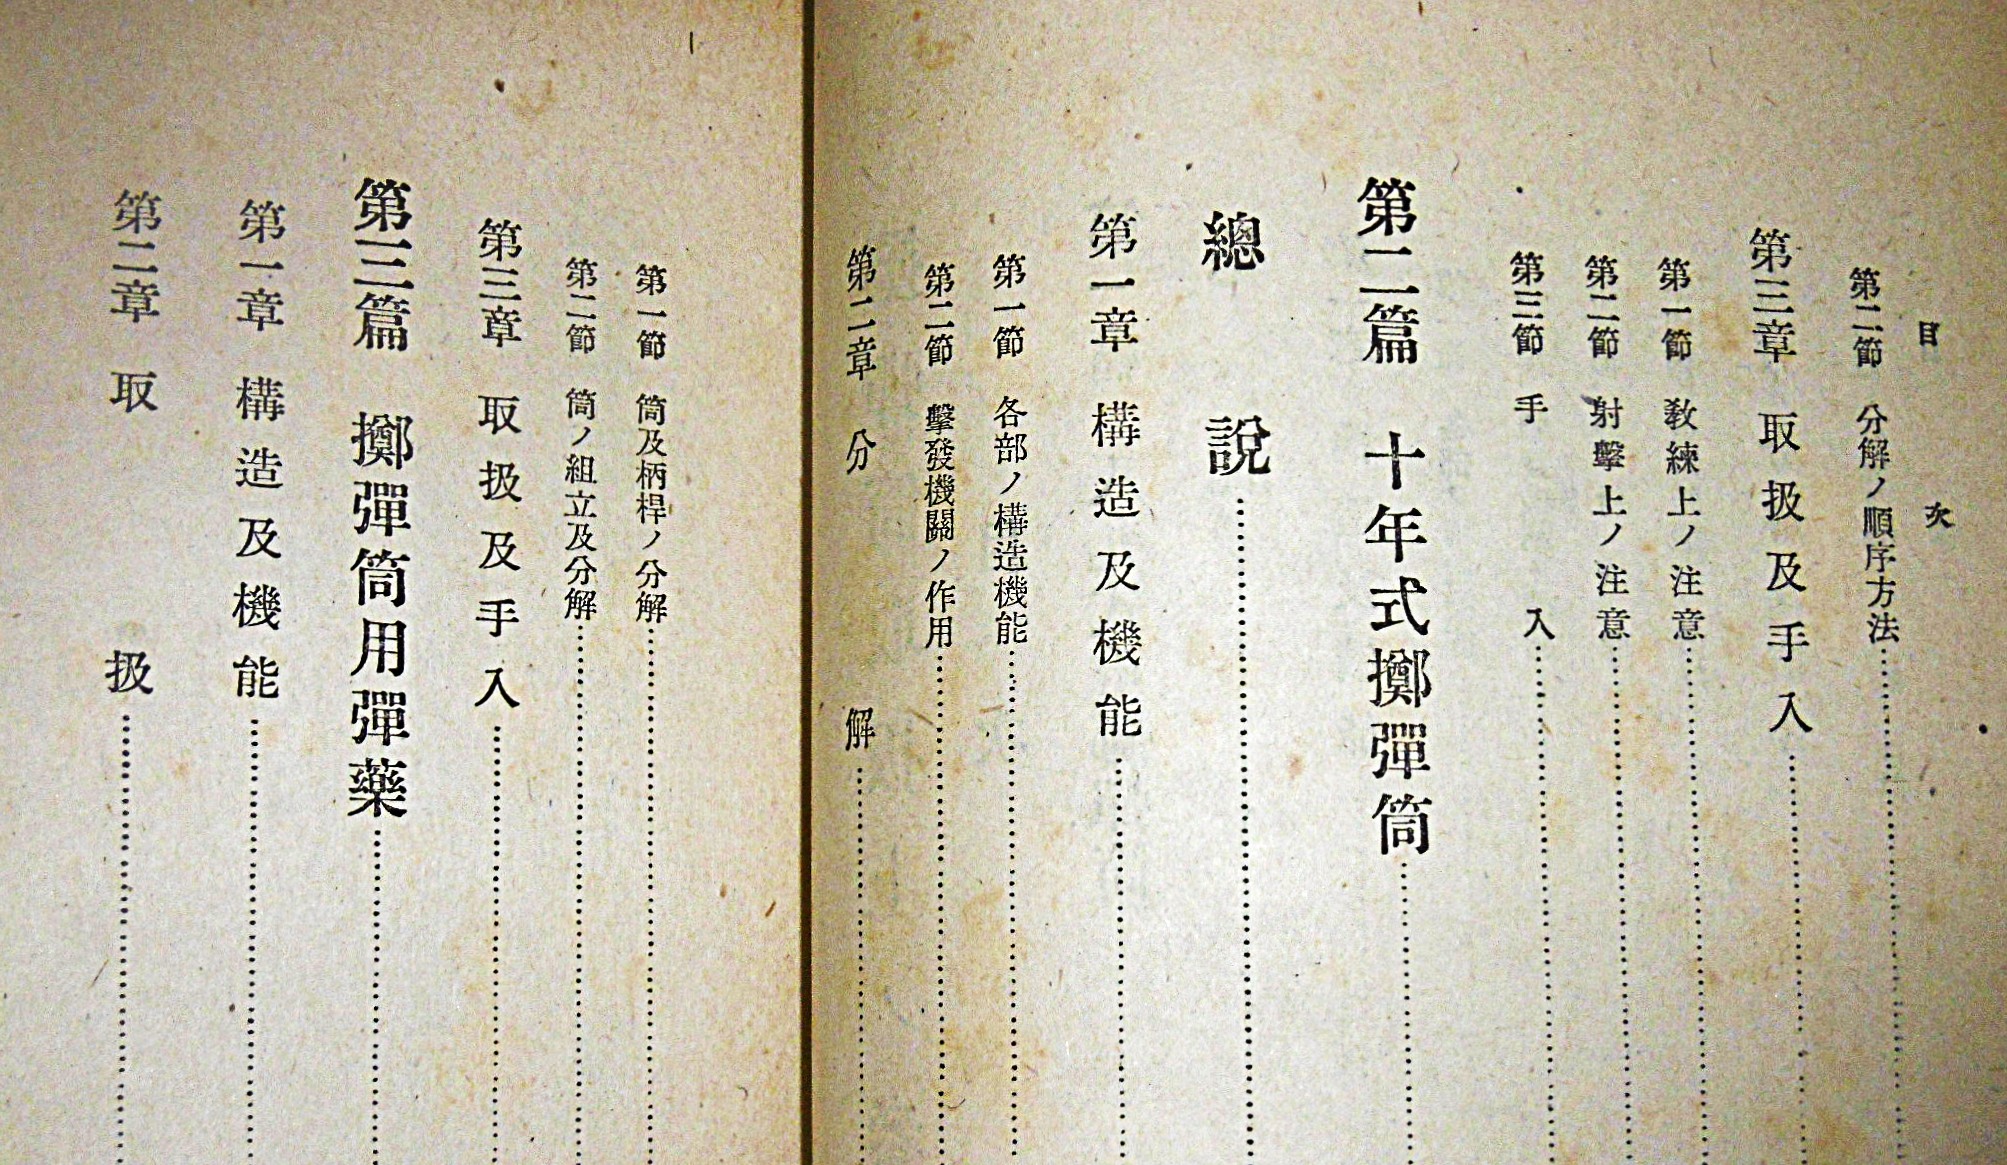 目次
第二節 分解ノ順序方法
第三章 取扱及手入
第一節 敎練上ノ注意
第二節 射擊上ノ注意
第三節 手入
第二篇 十年式擲彈筒
總說
第一章 構造及機能
第一節 各部ノ構造機能
第二節 擊發機關ノ作用
第二章 分解
第一節 筒及柄桿ノ分解
第二節 筒ノ組立及分解
第三章 取扱及手入
第三篇 擲彈筒用彈藥
第一章 構造及機能
第二章 取扱